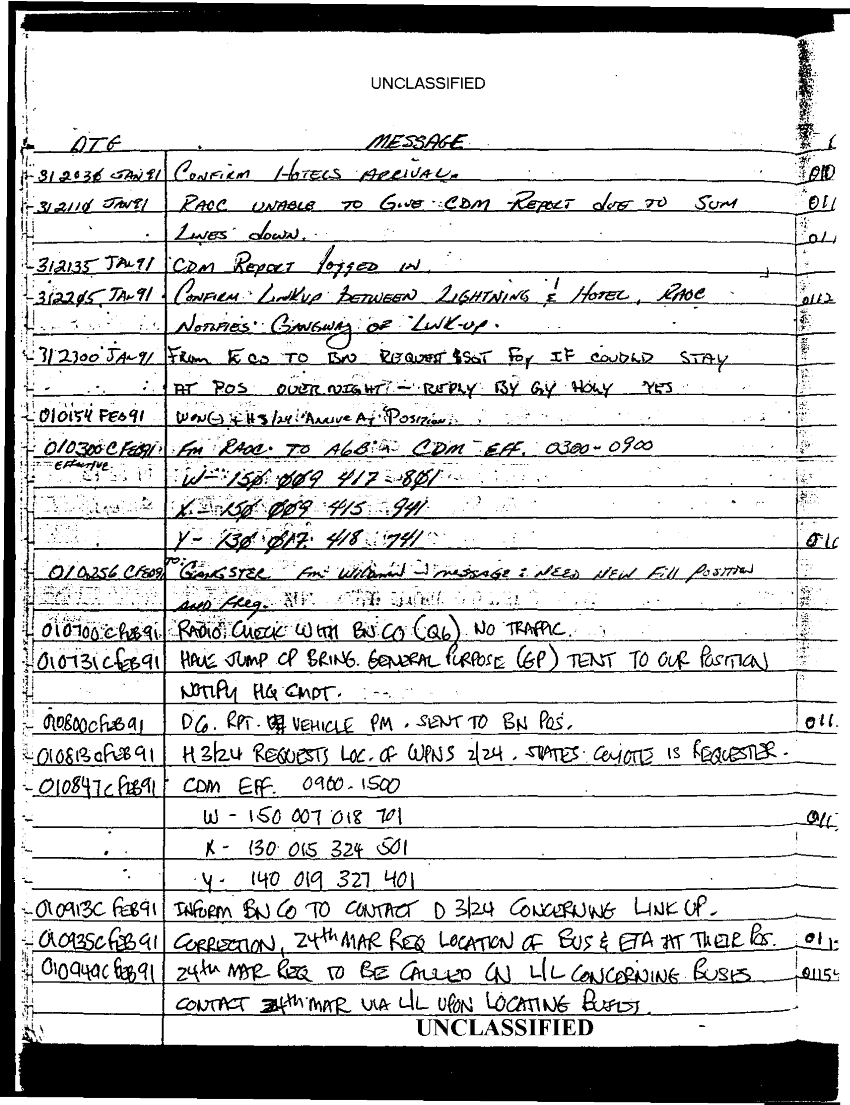 UNCLASSIFIED
DTG MESSAGE
312030 JAN 91 CONFIRM HOTELS ARRIVAL.
312110 JAN 91 RAOC UNABLE TO GIVE CDM REPORT due TO SUM
LINES down.
312135 JAN 91 CDM REPORT logged IN
312205 JAN 91 CONFIRM LINKUP BETWEEN LIGHTNING & HOTEL, RAOC
NOTIFIES GANGWAY OF LINK-UP.
312300 JAN 91 FROM E CO TO BN REQUEST IF COULD STAY
AT POS OVERNIGHT - REPLY BY YES
010154 FEB 91 WPN(-) & H 3/24 ARRIVE AT POSITION.
010300C FEB 91 FM RAOC TO CDM EFF. 0300-0900
EFFECTIVE
W - 150 009 417 801
X - 150 009 415 941
Y - 130 017 418 741
010256 C FEB 91 TO: GANGSTER FM MESSAGE : NEED NEW FILL POSITION
AND FREQ.
010700 C FEB 91 RADIO CHECK WITH BN CO (Q6) NO TRAFFIC.
010731 C FEB 91 HAVE JUMP CP BRING GENERAL PURPOSE (GP) TENT TO OUR POSITION
NOTIFY HQ CMDT.
010800 C FEB 91 DG. RPT. VEHICLE PM. SENT TO BN POS.
010813 C FEB 91 H 3/24 REQUESTS LOC. OF WPNS 2/24. STATES COYOTE IS REQUESTER.
010847 C FEB 91 CDM EFF. 0900-1500
W - 150 007 018 701
X - 130 015 324 501
Y - 140 019 327 401
010913C FEB 91 INFORM BN CO TO CONTACT D 3/24 CONCERNING LINK UP.
010935C FEB 91 CORRECTION, 24th MAR REQ LOCATION OF BUS & ETA AT THEIR POS.
010949C FEB 91 24th MAR REQ TO BE CALLED ON L/L CONCERNING BUSES
CONTACT 24th MAR VIA L/L UPON LOCATING BUSES.
UNCLASSIFIED